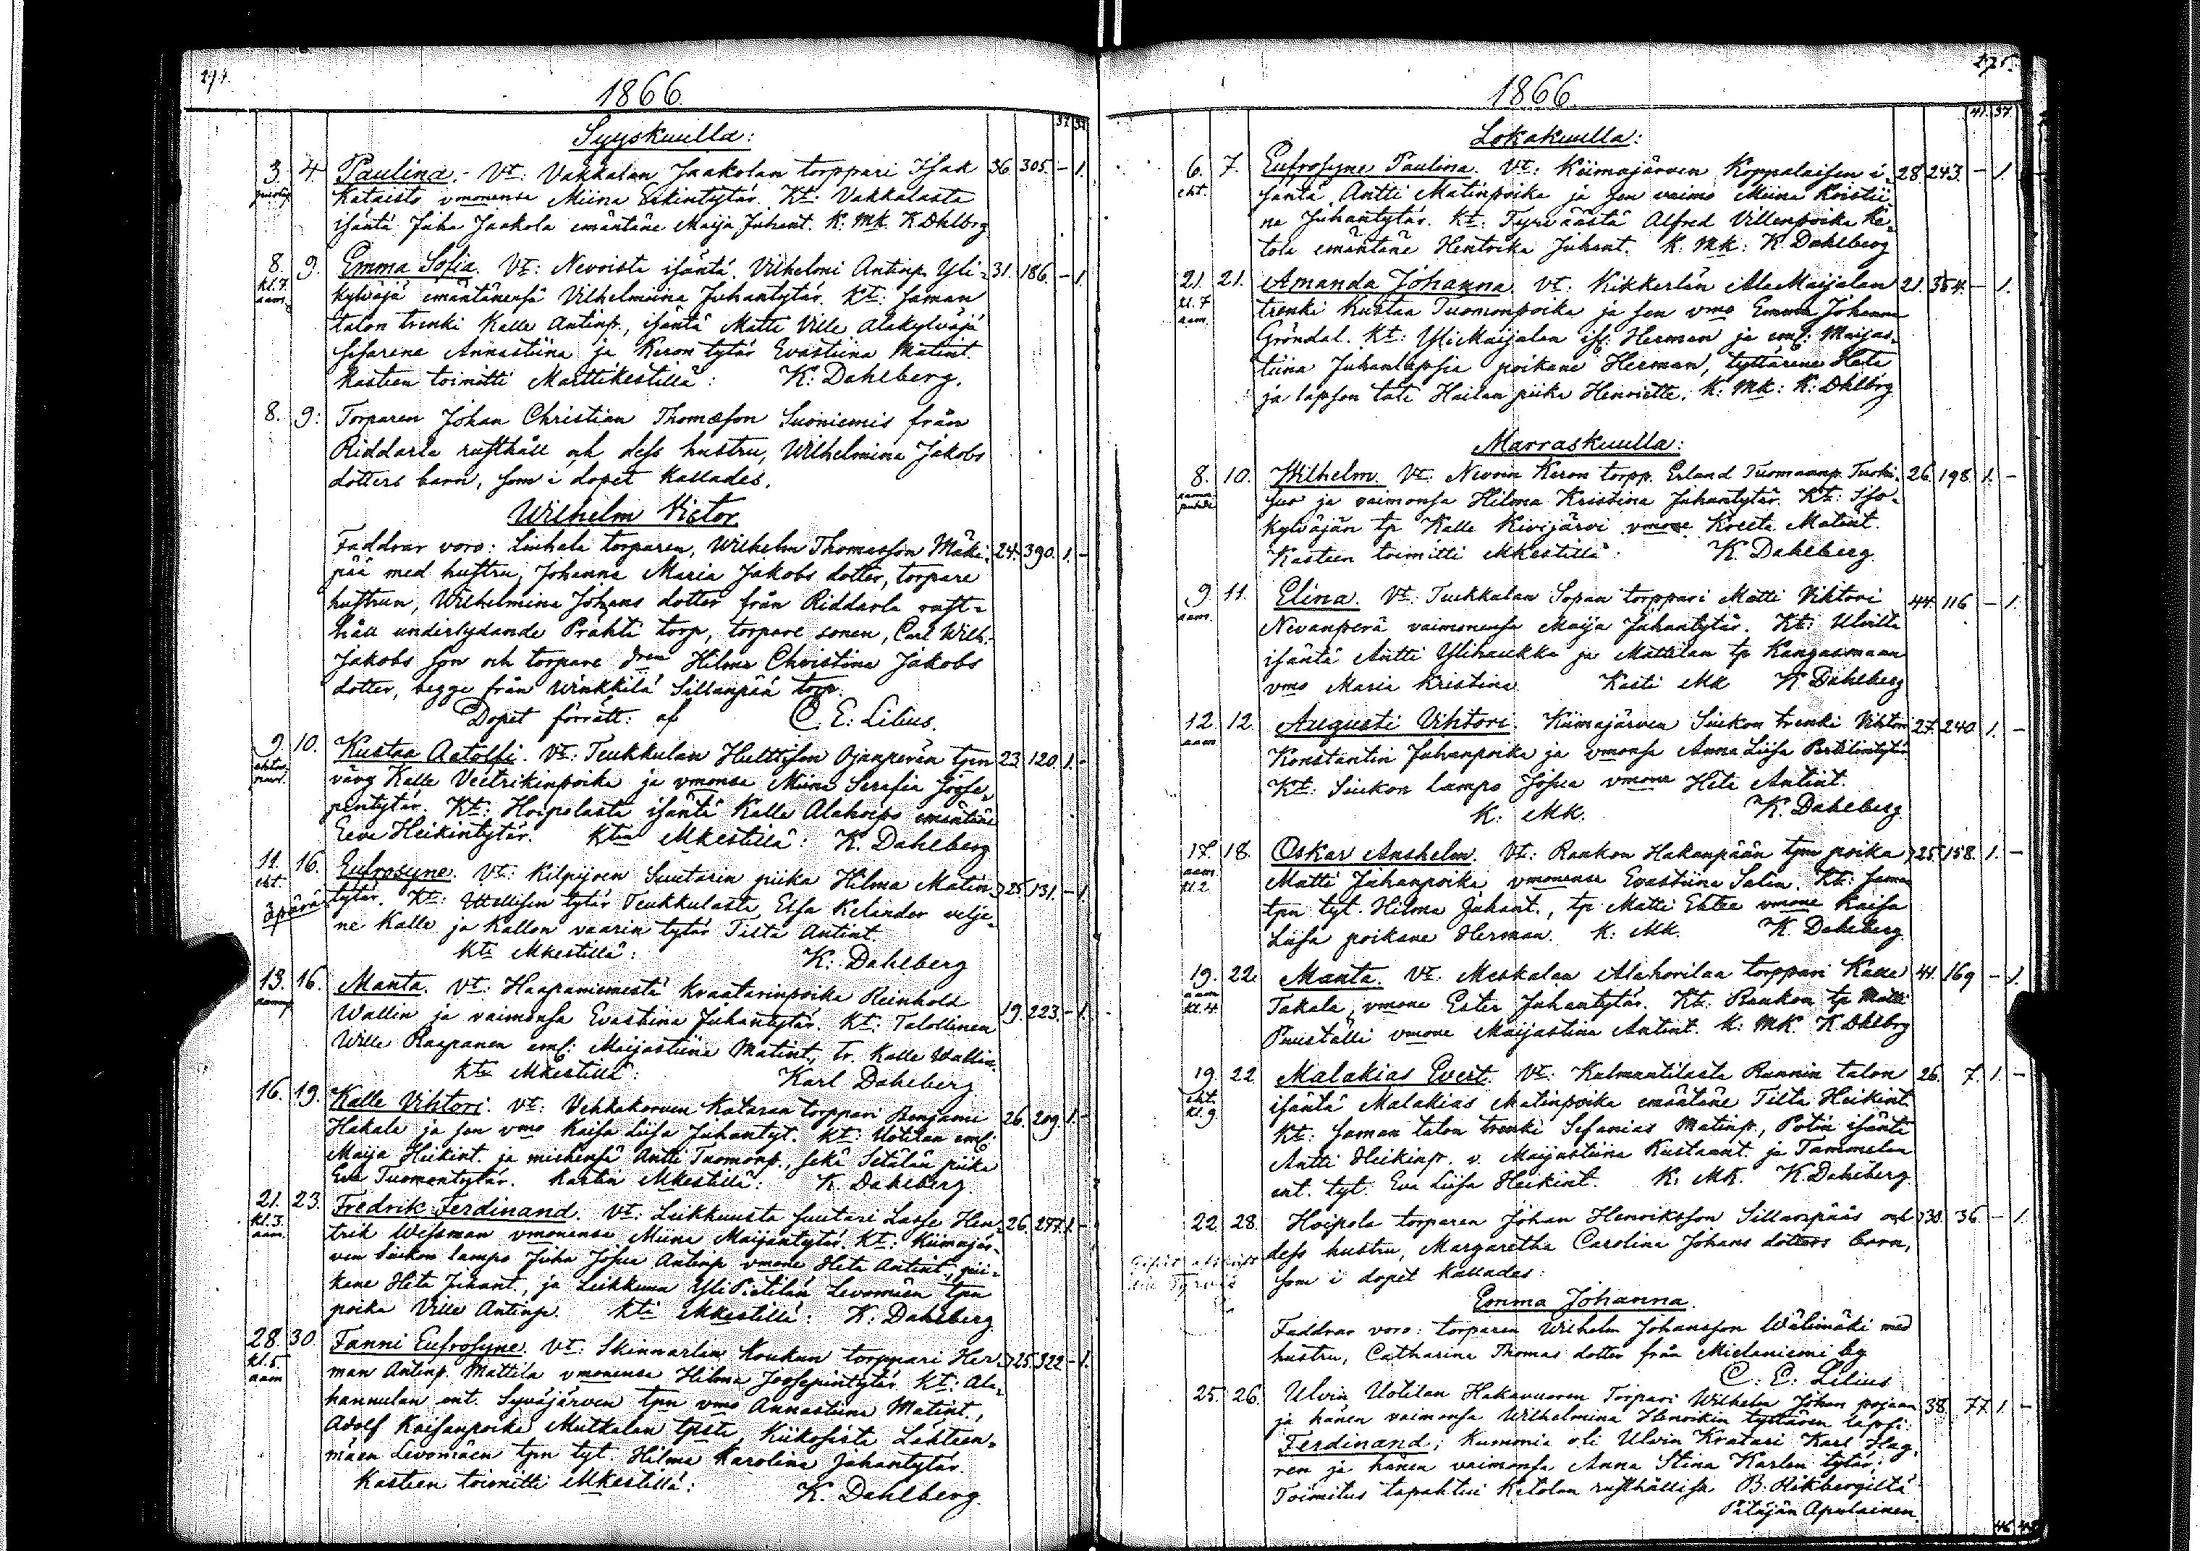 1866.
37 37
Syyskuulla:
3. 4. Paulina. - Vt: Vakkalan Jaakolan torppari Isak 36 305. - 1.
Kataisto vmonensa Miina Eskintytär. Kt: Vakkalasta
isäntä Juha Jaakola emäntäne Maija Juhant. K: Mk. K. Dhlbrg
8. 9. Emma Sofia. Vt: Nevoista isäntä Vilhelmi Antinp. Yli- 31. 186. - 1.
kl. 7. aam. kylväjä emäntänensä Vilhelmiina Juhantytär. Kt: Saman
talon trenki Kalle Antinp., isäntä Matti Ville Alakylväjä
sisarine Annastiina ja Keron tytär Evastiina Matint.
Kasteen toimitti Marttikestillä: K: Dahlberg.
8. 9. Torparen Johan Christian Thomæson Suoniemis från
Riddarla rusthåll och dess hustru, Wilhelmina Jakobs
dotters barn, som i dopet kallades.
Wilhelm Victor.
Faddrar voro: Liuhala torparen, Wilhelm Thomasson Mäki- 24. 390. 1. -
pää med hustru, Johanna Maria Jakobs dotter, torpare
hustrun, Wilhelmina Johans dotter från Riddarla rust-
håll underlydande Prähti torp, torpare sonen, Carl Wilh.
Jakobs son och torpare dren Hilma Christina Jakobs
dotter, begge från Winkkilä Sillanpää torp.
Dopet förrätt: af C. E: Lilius.
9. 10. Kustaa Aatolfi. Vt: Teukkulan Hulttisen Ojanperän tpin 23. 120. 1. -
vävy Kalle Veetrikinpoika ja vmonsa Miina Serafia Joose-
pintytär. Kt: Hoipolasta isäntä Kalle Alahoipo emäntäne
Eeva Heikintytär. Ktn Mkestillä: K. Dahlberg
11. 16. Eufrosyne. Vt: Kilpijoen Suutarin piika Hilma Matin- 25. 131. - 1.
eht. tytär. Kt: tytär Teukkulasta Elsa Kelander velje-
äpärä ne Kalle ja Kallon vaarin tytär Tilta Antint.
Kte Mkestillä: K: Dahlberg
13. 16. Manta. Vt: Haapaniemestä kraatarinpoika Reinhold
Wallin ja vaimonsa Evastiina Juhantytär. Kt: Talollinen 19. 223. - 1.
Wille Raapanen emä: Maijastiina Matint., tr. Kalle Wallin.
Kte Mkestillä: Karl Dahlberg
16. 19. Kalle Vihtori. Vt: Vehkakorven Kataran torppari Benjami 26. 209. 1. -
Hakala ja sen vmo Kaisa Liisa Juhantyt. Kt: Uotilan emä:
Maija Heikint. ja miehensä Antti Tuomonp., sekä Setälän piika
Eva Tuomontytär. Kastin Mkestillä: K. Dahlberg.
21. 23. Fredrik Ferdinand. Vt: Leikkuusta suutari Lasse Hen- 26. 297. 1. -
kl. 3. aam. trik Wessman vmonensa Miina Maijantytär. Kt: Kiimajär-
ven Siukon lampo Juha Josua Antinp. vmone Heta Antint., pii-
kane Heta Juhant., ja Leikkuun Yli Pietilän Levomäen tpn
poika Ville Antinp. Kti Mkestillä: K: Dahlberg.
28. 30. Fanni Eufrosyne. Vt: Skinnarlan Koukun torppari Her- 25. 322. - 1.
kl. 5. aam man Antinp. Mattila vmonensa Hilma Joosepintytär. Kt: Ala-
hannulan ent. Syväjärven tpn vmo Annastiina Matint.,
Adolf Kaisanpoika Mutkalan tpsta, Kiikosista Lähteen-
mäen Levomäen tpn tyt. Hilma Karolina Juhantytär.
Kasteen toimitti Mkestillä: K. Dahlberg.
1866.
275.
41. 37.
Lokakuulla:
6. 7. Eufrosyne Paulina. Vt: Kiimajärven Koppalaisen i- 28. 243. - 1.
eht. säntä Antti Matinpoika ja sen vaimo Miina Kristii-
na Juhantytär. Kt: Tyrväästä Alfred Villenpoika Ke-
tola emäntäne Hentrika Juhant. K. Mk: K. Dahlberg
21. 21. Amanda Johanna. Vt: Kikkerlän AlaMaijalan 21. 354. - 1.
kl. 7 aam. trenki Kustaa Tuomonpoika ja sen vmo Emma Johanna
Gröndal. Kt: YliMaijalan is: Herman ja emä: Maijas-
tiina Juhanlapsia poikane Herman, tyttärene Heta
ja lapsen täti Hailan piika Henriette. K: Mk: K: Dhlbrg
Marraskuulla:
8. 10. Wilhelm. Vt: Nevoin Keron torpp. Erland Tuomaanp. Turki- 26. 198. 1. -
suo ja vaimonsa Hilma Kristina Juhantytär. Kt: Iso-
kylväjän tp Kalle Kivijärvi vmone Kreeta Matint.
Kasteen toimitti Mkestillä: K. Dahlberg
9. 11. Elina. Vt: Teukkulan Sopan torppari Matti Vihtori 44. 116. - 1.
aam. Nevanperä vaimonensa Maija Juhantytär. Kt: Ulvilta
isäntä Antti Ylihaukka ja Mattilan tp Kangasmaan
vmo Maria Kristina. Kasti Mk K. Dahlberg
12. 12. Augusti Vihtori. Kiimajärven Siukon trenki Vihtori 27. 240. 1. -
aam Konstantin Juhanpoika ja vmonsa Anna Liisa Perttilintytär.
Kt: Siukon lampo Josua vmone Heta Antint.
K: Mk. K. Dahlberg.
17. 18. Oskar Anshelm. Vt: Raukon Hakanpään tpn poika 25. 158. 1. -
aam. kl. 2. Matti Juhanpoika vmonensa Evastiina Salin. Kt: Saman
tpn tyt. Hilma Juhant., tp Matti Ektee vmone Kaisa
Liisa poikane Herman. K: Mk. K. Dahlberg.
19. 22. Manta. Vt: Meskalan Alahorilan torppari Kalle 41. 169 - 1.
aam kl. 4. Takala, vmone Ester Juhantytär. Kt: Raukon tp Matti
Puustelli vmone Maijastina Antint. K: Mk. K. Dhlbrg
19. 22. Malakias Evert. Vt: Kulmantilasta Rannin talon 26. 7. 1. -
eht. kl. 9. isäntä Malakias Matinpoika emäntäne Tilta Heikint.
Kt: Saman talon trenki Sefanias Matinp., Potin isäntä
Antti Heikinp. v. Maijastiina Kustaant. ja Tammelan
ent. tyt. Eva Liisa Heikint. K: Mk. K. Dahlberg.
22. 28. Hoipola torparen Johan Henriksson Sillanpääs och 30. 36. - 1.
dess hustru, Margaretha Carolina Johans dotters barn,
som i dopet kallades:
Emma Johanna.
Faddrar voro: torparen Wilhelm Johansson Wälimäki med
hustru, Catharina Thomas dotter från Mielaniemi by
C: E: Lilius
25. 26. Ulvin Uotilan Hakavuoren Torpari Wilhelm Johan pojan 38. 77. 1. -
ja hänen vaimonsa Wilhelmina Henrikin tyttären lapsi:
Ferdinand; Kumonia oli Ulvin Kratari Karl Hag-
ren ja hänen vaimonsa Anna Stina Karlen tytär;
Toimitus tapahtui Ketolan rusthållissa B. Hökbergiltä
Pitäjän Apulainen.